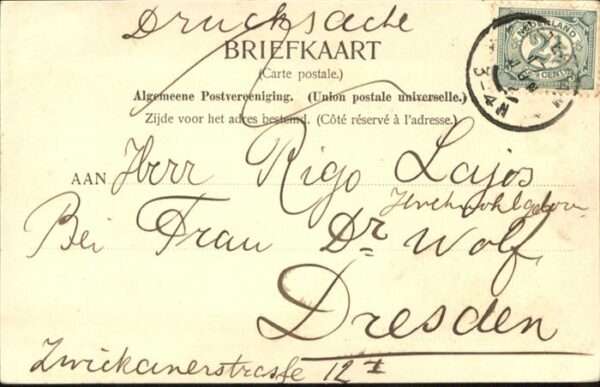 Drucksache
BRIEFKAART
(Carte postale.)
Algemeene Postvereeniging. (Union postale universelle.)
Zijde voor het adres bestemd. (Côté réservé à l'adresse.)
NEDERLAND
2½
CENT
3-4 N
AAN Herr Rigo Lajos
Hochwohlgeboren
Bei Frau Dr Wolf
Dresden
Zwickauerstrasse 12 I